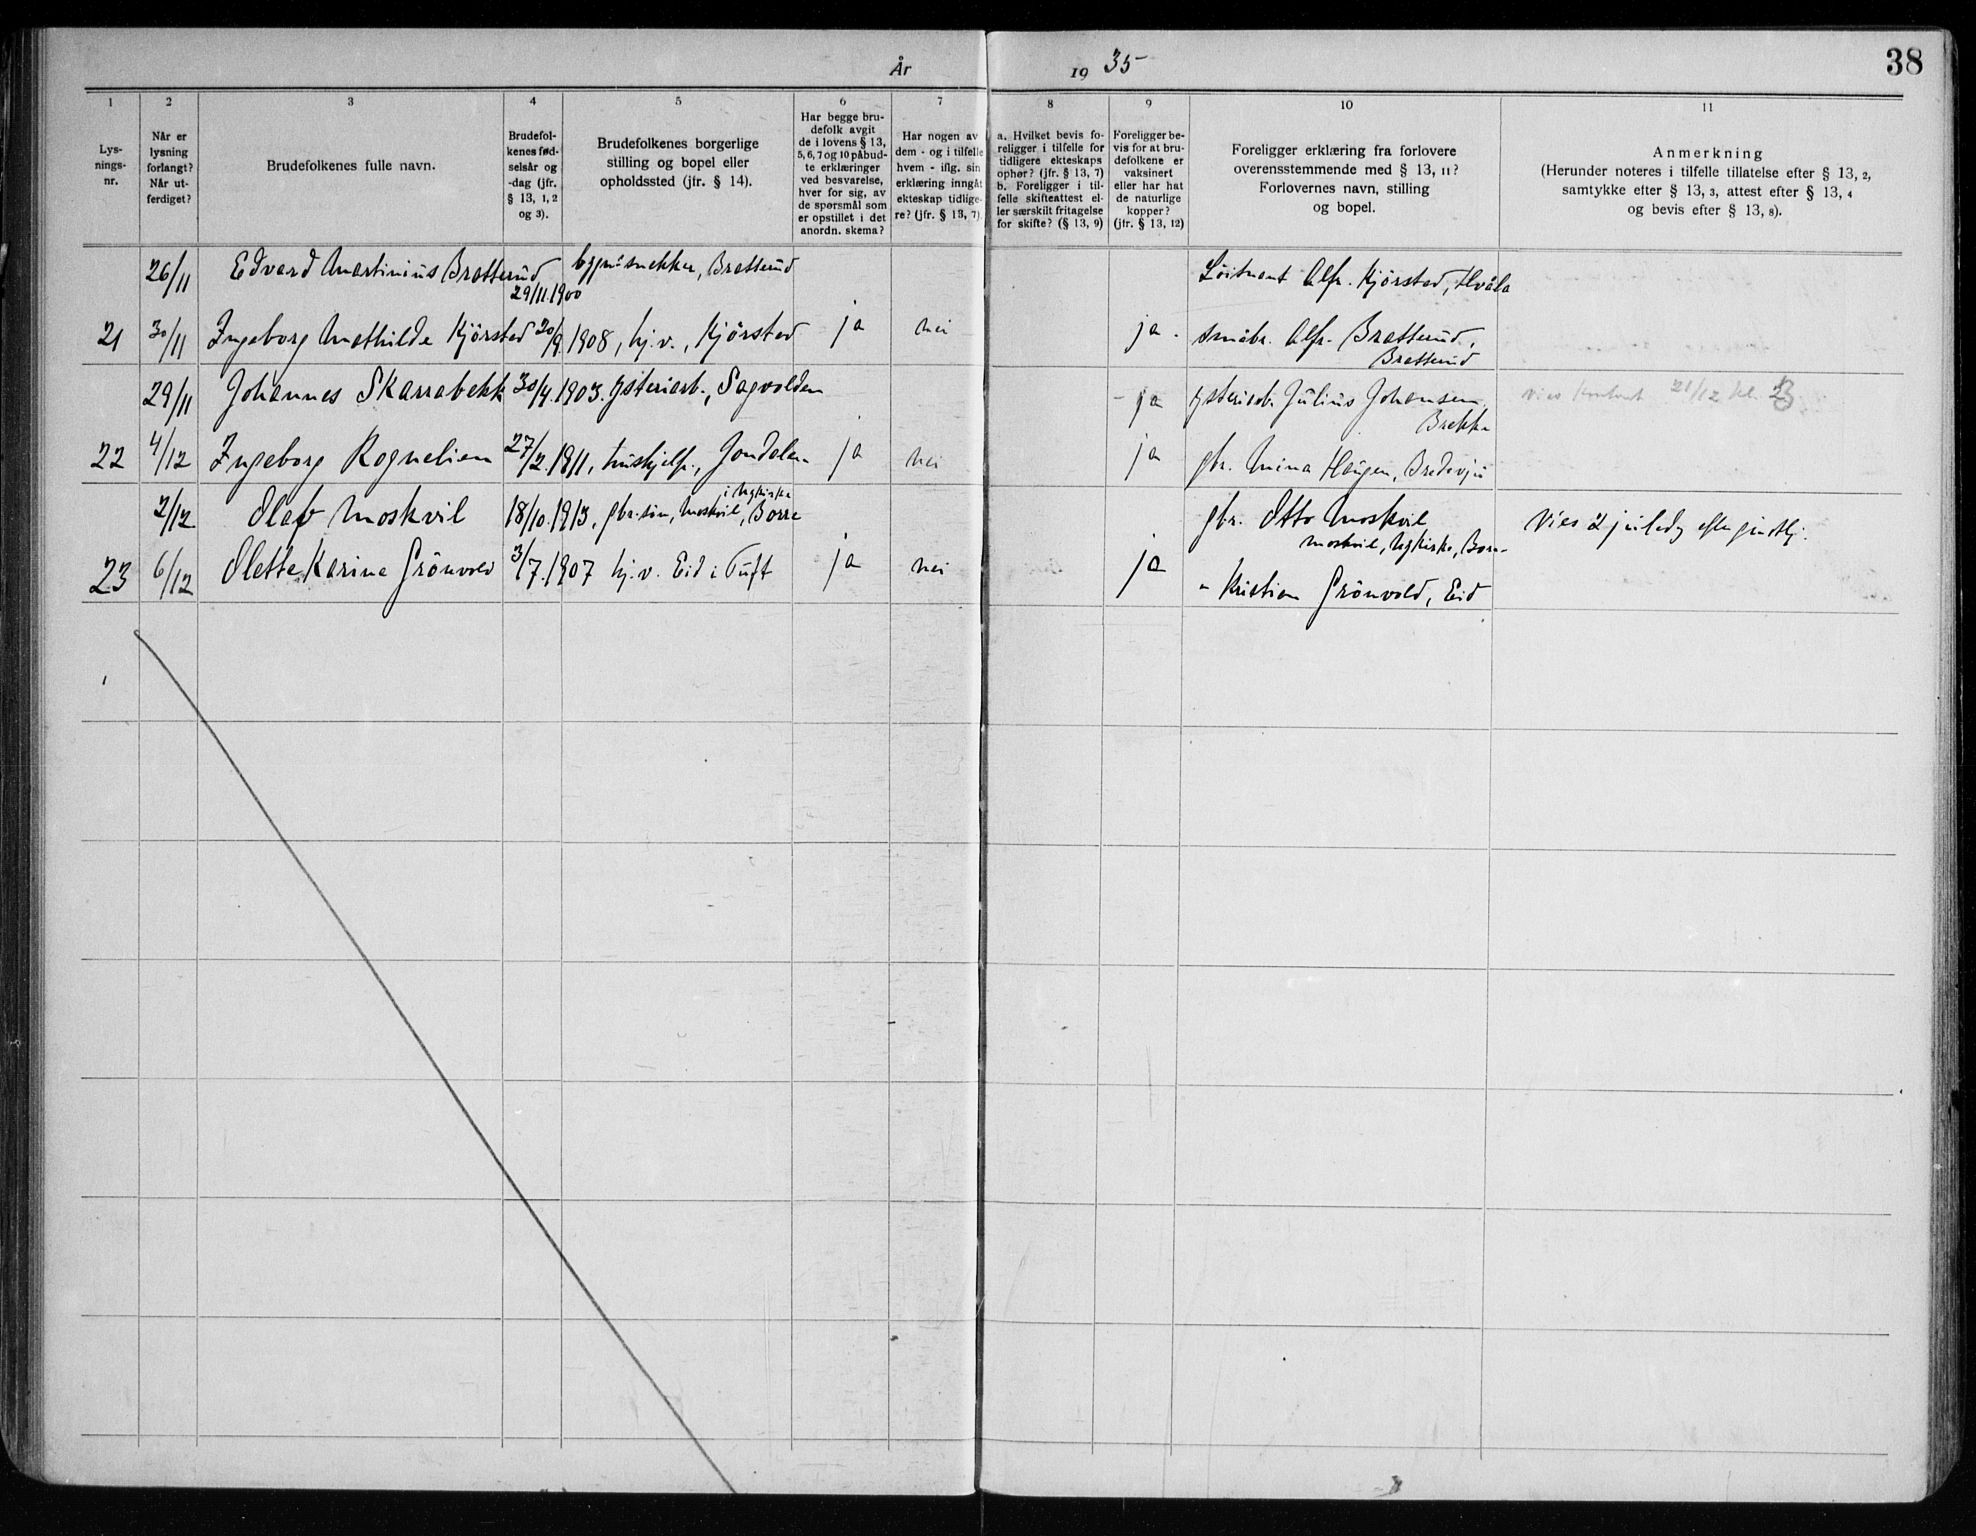 År 1935
38
1
2
3
4
5
6
7
8
9
10
11
Lys-
nings-
nr.
Når er
lysning
forlangt?
Når ut-
ferdiget?
Brudefolkenes fulle navn.
Brudefol-
kenes fød-
selsår og
-dag (jfr.
§ 13, 1, 2
og 3).
Brudefolkenes borgerlige
stilling og bopel eller
opholdssted (jfr. § 14).
Har begge bru-
defolk avgit
de i lovens § 13,
5, 6, 7 og 10 påbud-
te erklæringer
ved besvarelse,
hver for sig, av
de spørsmål som
er opstillet i det
anordn. skema?
Har nogen av
dem - og i tilfelle
hvem - iflg. sin
erklæring inngåt
ekteskap tidlige-
re? (jfr. § 13, 7).
a. Hvilket bevis fo-
religger i tilfelle for
tidligere ekteskaps
ophør? (jfr. § 13, 7)
b. Foreligger i til-
felle skifteattest el-
ler særskilt fritagelse
for skifte? (§ 13, 9)
Foreligger be-
vis for at bru-
defolkene er
vaksinert
eller har hat
de naturlige
kopper?
(jfr. § 13, 12)
Foreligger erklæring fra forlovere
overensstemmende med § 13, 11?
Forlovernes navn, stilling
og bopel.
Anmerkning
(Herunder noteres i tilfelle tillatelse efter § 13, 2,
samtykke efter § 13, 3, attest efter § 13, 4
og bevis efter § 13, 8).
26/11 Edvard Martinius Bratterud 29/11.1900 bygn.snekker, Bratterud Løitnant Alfr. Kjørstad, Hvåla
21 30/11 Ingeborg Mathilde Kjørstad 20/9.1908, hj.v., Kjørstad ja nei ja. småbr. Alfr. Bratterud,
Bratterud
29/11 Johannes Skarrabekk 30/4.1903. ysteriarb., Sagvolden - ja ysteriarb. Julius Johansen, Vies 21/12 kl.
Brekke
22 4/12 Ingeborg Rognelien 27/2.1911, hushjelp., Jondalen ja nei ja gbr. Mina Haugen, Bredevju
2/12 Olaf Moskvil 18/10.1913, gbr.søn, Moskvil, i Nykirke Borre gbr. Otto Moskvil Vies 2 juledag efter gudstj.
Moskvil, Nykirke, Borre
23 6/12 Olette Karine Grönvold 3/7.1907 hj.v. Eid i Tuft ja nei ja - Kristian Grönvold, Eid